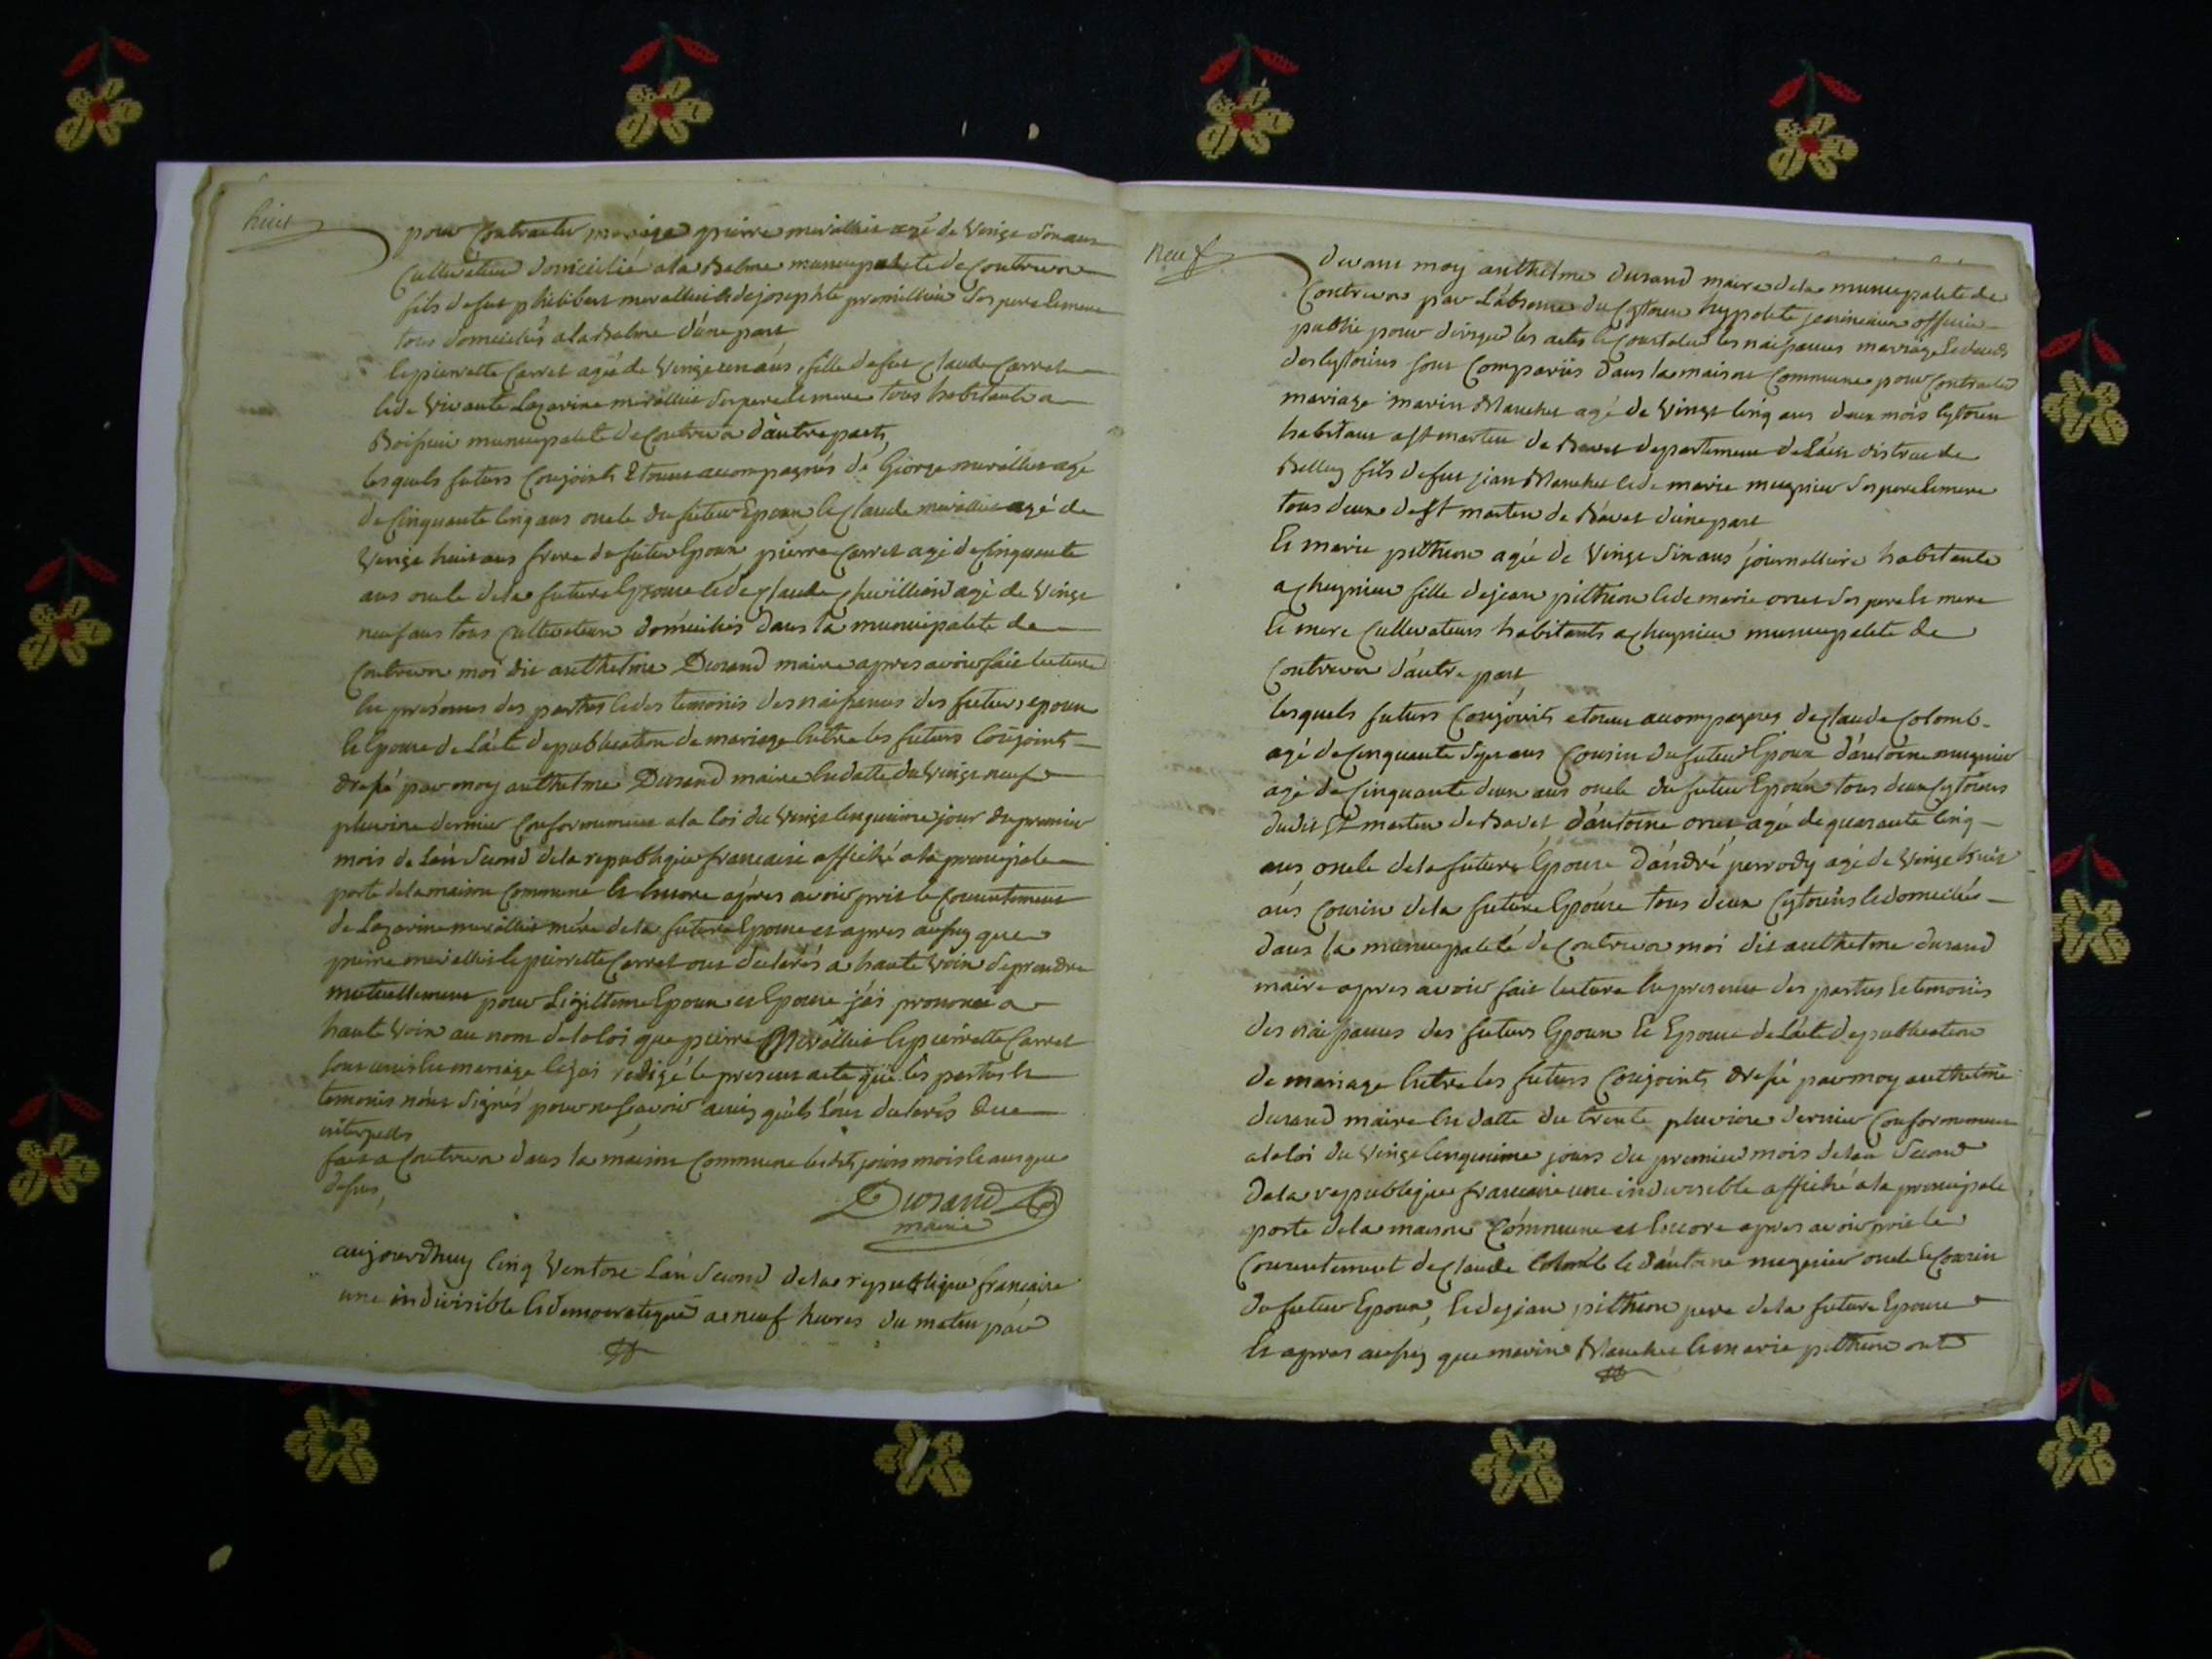 huit
pour Contracter mariage pierre mirallier agé de Vingt six ans
Cultivateur domicilié a la Balme municipalité de Contrevoz
fils de fut philibert mirallier et de josephte premillieu ses pere et mere
tous domiciliés a la Balme d'une part
et pierrette Carret agée de Vingt un ans, fille de fut Claude Carret
et de Vivante Lazarine mirallier ses pere et mere tous habitants a
Boissieu municipalité de Contrevoz d'autre part,
lesquels futurs Conjoints Etoient accompagnés de George mirallier agé
de Cinquante Cinq ans oncle du futur Epoux et Claude mirallier agé de
Vingt huit ans frere du futur Epoux pierre Carret agé de Cinquante
ans oncle de la future Epouse et de Claude agé de Vingt
neuf ans tous Cultivateurs domiciliés dans la municipalité de
Contrevoz moi dit anthelme Durand maire apres avoir fait lecture
En présence des parties et des temoins des naissances des futurs epoux
Et Epouse de L'acte de publication de mariage Entre les futurs Conjoints
dressé par moy anthelme Durand maire En datte du Vingt neuf
pluviose dernier Conformement a la loi du Vingt Cinquieme jour du premier
mois de L'an Second de la republique francaise affiché a la principale
porte de la maison Commune Et Encore apres avoir pris le Consentement
de Lazarine mirallier mére de la future Epouse et apres aussy que
pierre mirallier et pierrette Carret ont declarés a haute Voix se prendre
mutuellement pour Légittime Epoux et Epouse j'ai prononcé a
haute Voix au nom de la loi que pierre Mirallier et pierrette Carret
sont unis En mariage Et j'ai redigé le present acte que les parties Et
temoins n'ont Signés pour ne scavoir ainsy qu'ils L'ont declarés Due
interpellés
fait a Contrevoz dans la maison Commune lesdits jours mois et ans que
dessus,
Durand
maire
aujourdhuy Cinq Ventose L'an Second de la republique francaise
une indivisible Et democratique a neuf heures du matin par
neuf
devant moy anthelme durand maire de la municipalité de
Contrevoz par L'absence du Cytoien hypolite officier
public pour diriger les actes Et Constater les naissances mariage Et deces
des Cytoiens sont Comparüs dans la maison Commune pour Contracter
mariage marin Blanchet agé de Vingt Cinq ans deux mois Cytoien
habitant a St martin de Bavet departement de L'ain district de
Belley fils de fut jean Blanchet et de marie mugnier ses pere et mere
tous deux de St martin de Bavet d'une part
Et marie pithion agée de Vingt Six ans journalliere habitante
a Chugnieu fille de jean pithion et de marie oruet ses pere et mere
Et mere Cultivateurs habitants a Chugnieu municipalité de
Contrevoz d'autre part,
lesquels futurs Conjoints etoient accompagnés de Claude Colomb
agé de Cinquante Sept ans Cousin du futur Epoux d'antoine mugnier
agé de Cinquante deux ans oncle du futur Epoux tous deux Cytoiens
dudit St martin de Bavet d'antoine oruet agé de quarante Cinq
ans oncle de la future Epouse d'andré perrody agé de Vingt huit
ans Cousin de la future Epouse tous deux Cytoiens et domiciliés
dans la municipalité de Contrevoz moi dit anthelme durand
maire apres avoir fait lecture En presence des parties Et temoins
des naissances des futurs Epoux Et Epouse de L'acte de publication
de mariage Entre les futurs Conjoints dressé par moy anthelme
durand maire En datte du trente pluviose dernier Conformement
a la loi du Vingt Cinquieme jours du premier mois de L'an Second
de la republique francaise une indivisible affiché a la principale
porte de la maison Commune et Encore apres avoir pris le
Consentement de Claude Colomb Et d'antoine mugnier oncle Et Cousin
du futur Epoux, Et de jean pithion pere de la future Epouse
Et apres aussy que marin Blanchet Et marie pithion ont